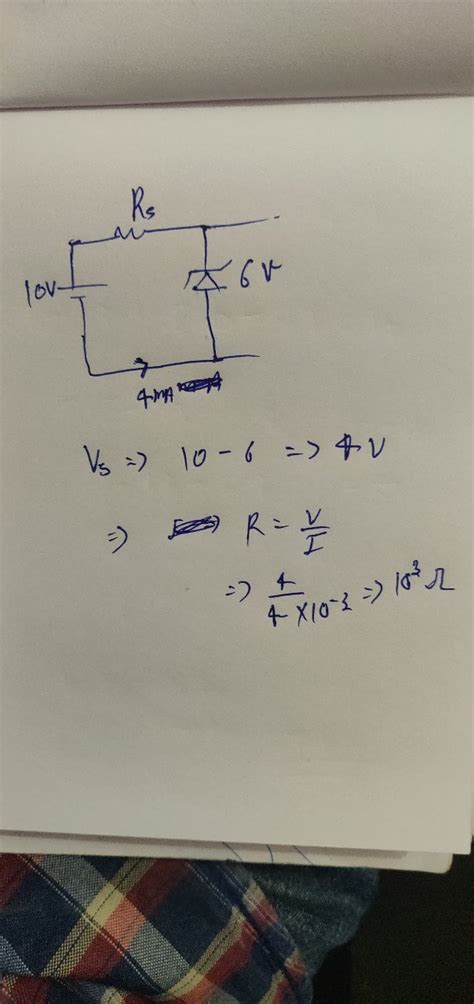 Rs
10V
6V
4mA
Vs => 10 - 6 => 4V
=> R = V/I
=> 4/4 × 10⁻³ => 10³ Ω